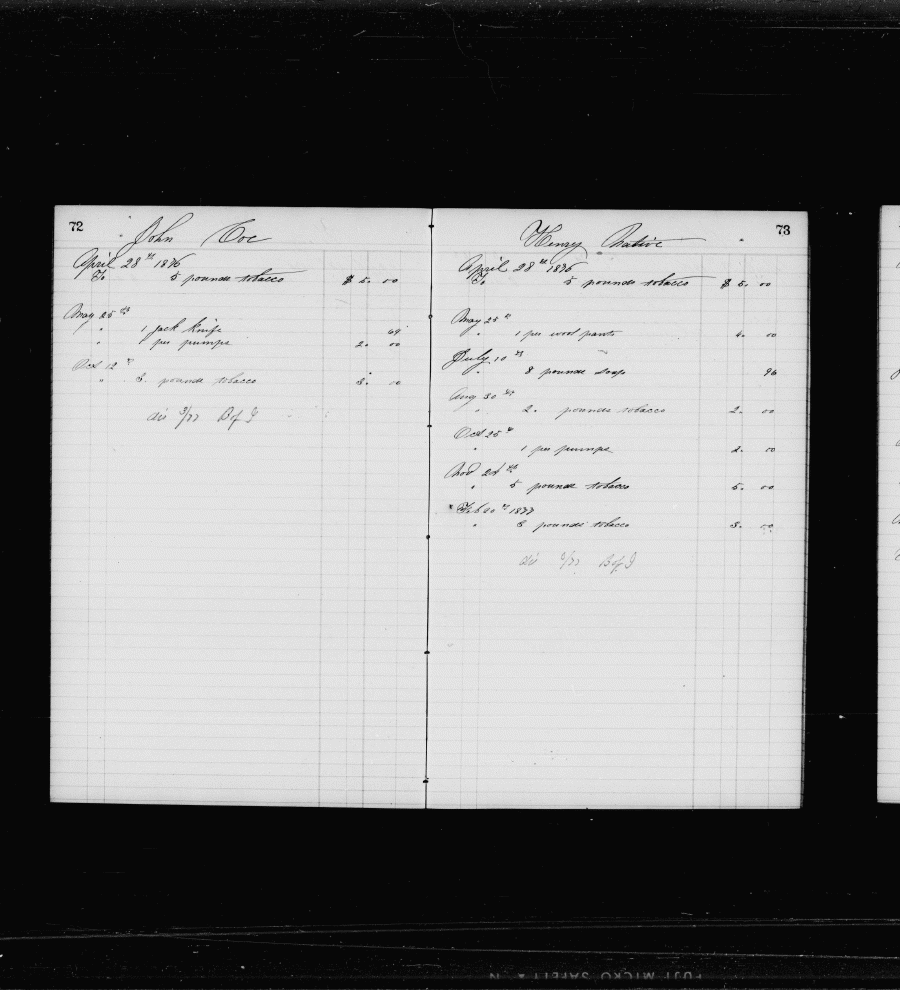 72
John Coe
April 28th 1876
To 5 pounds tobacco $ 5. 00
May 25th
" 1 Jack Knife 69
" 1 per pumps 2. 00
Oct 12th
" 3. pounds tobacco 3. 00
dis 3/77 B of I
73
Henry Native
April 28th 1876
To 5 pounds tobacco $ 5. 00
May 25th
" 1 per wool pants 4. 00
July 10th
" 8 pounds soap 96
Aug 30th
" 2. pounds tobacco 2. 00
Oct 25th
" 1 per pumps 2. 00
Nov 24th
" 5 pounds tobacco 5. 00
Feb 1877
" 3 pounds tobacco 3. 00
dis /77 B of I
FUJI MICRO SAFETY